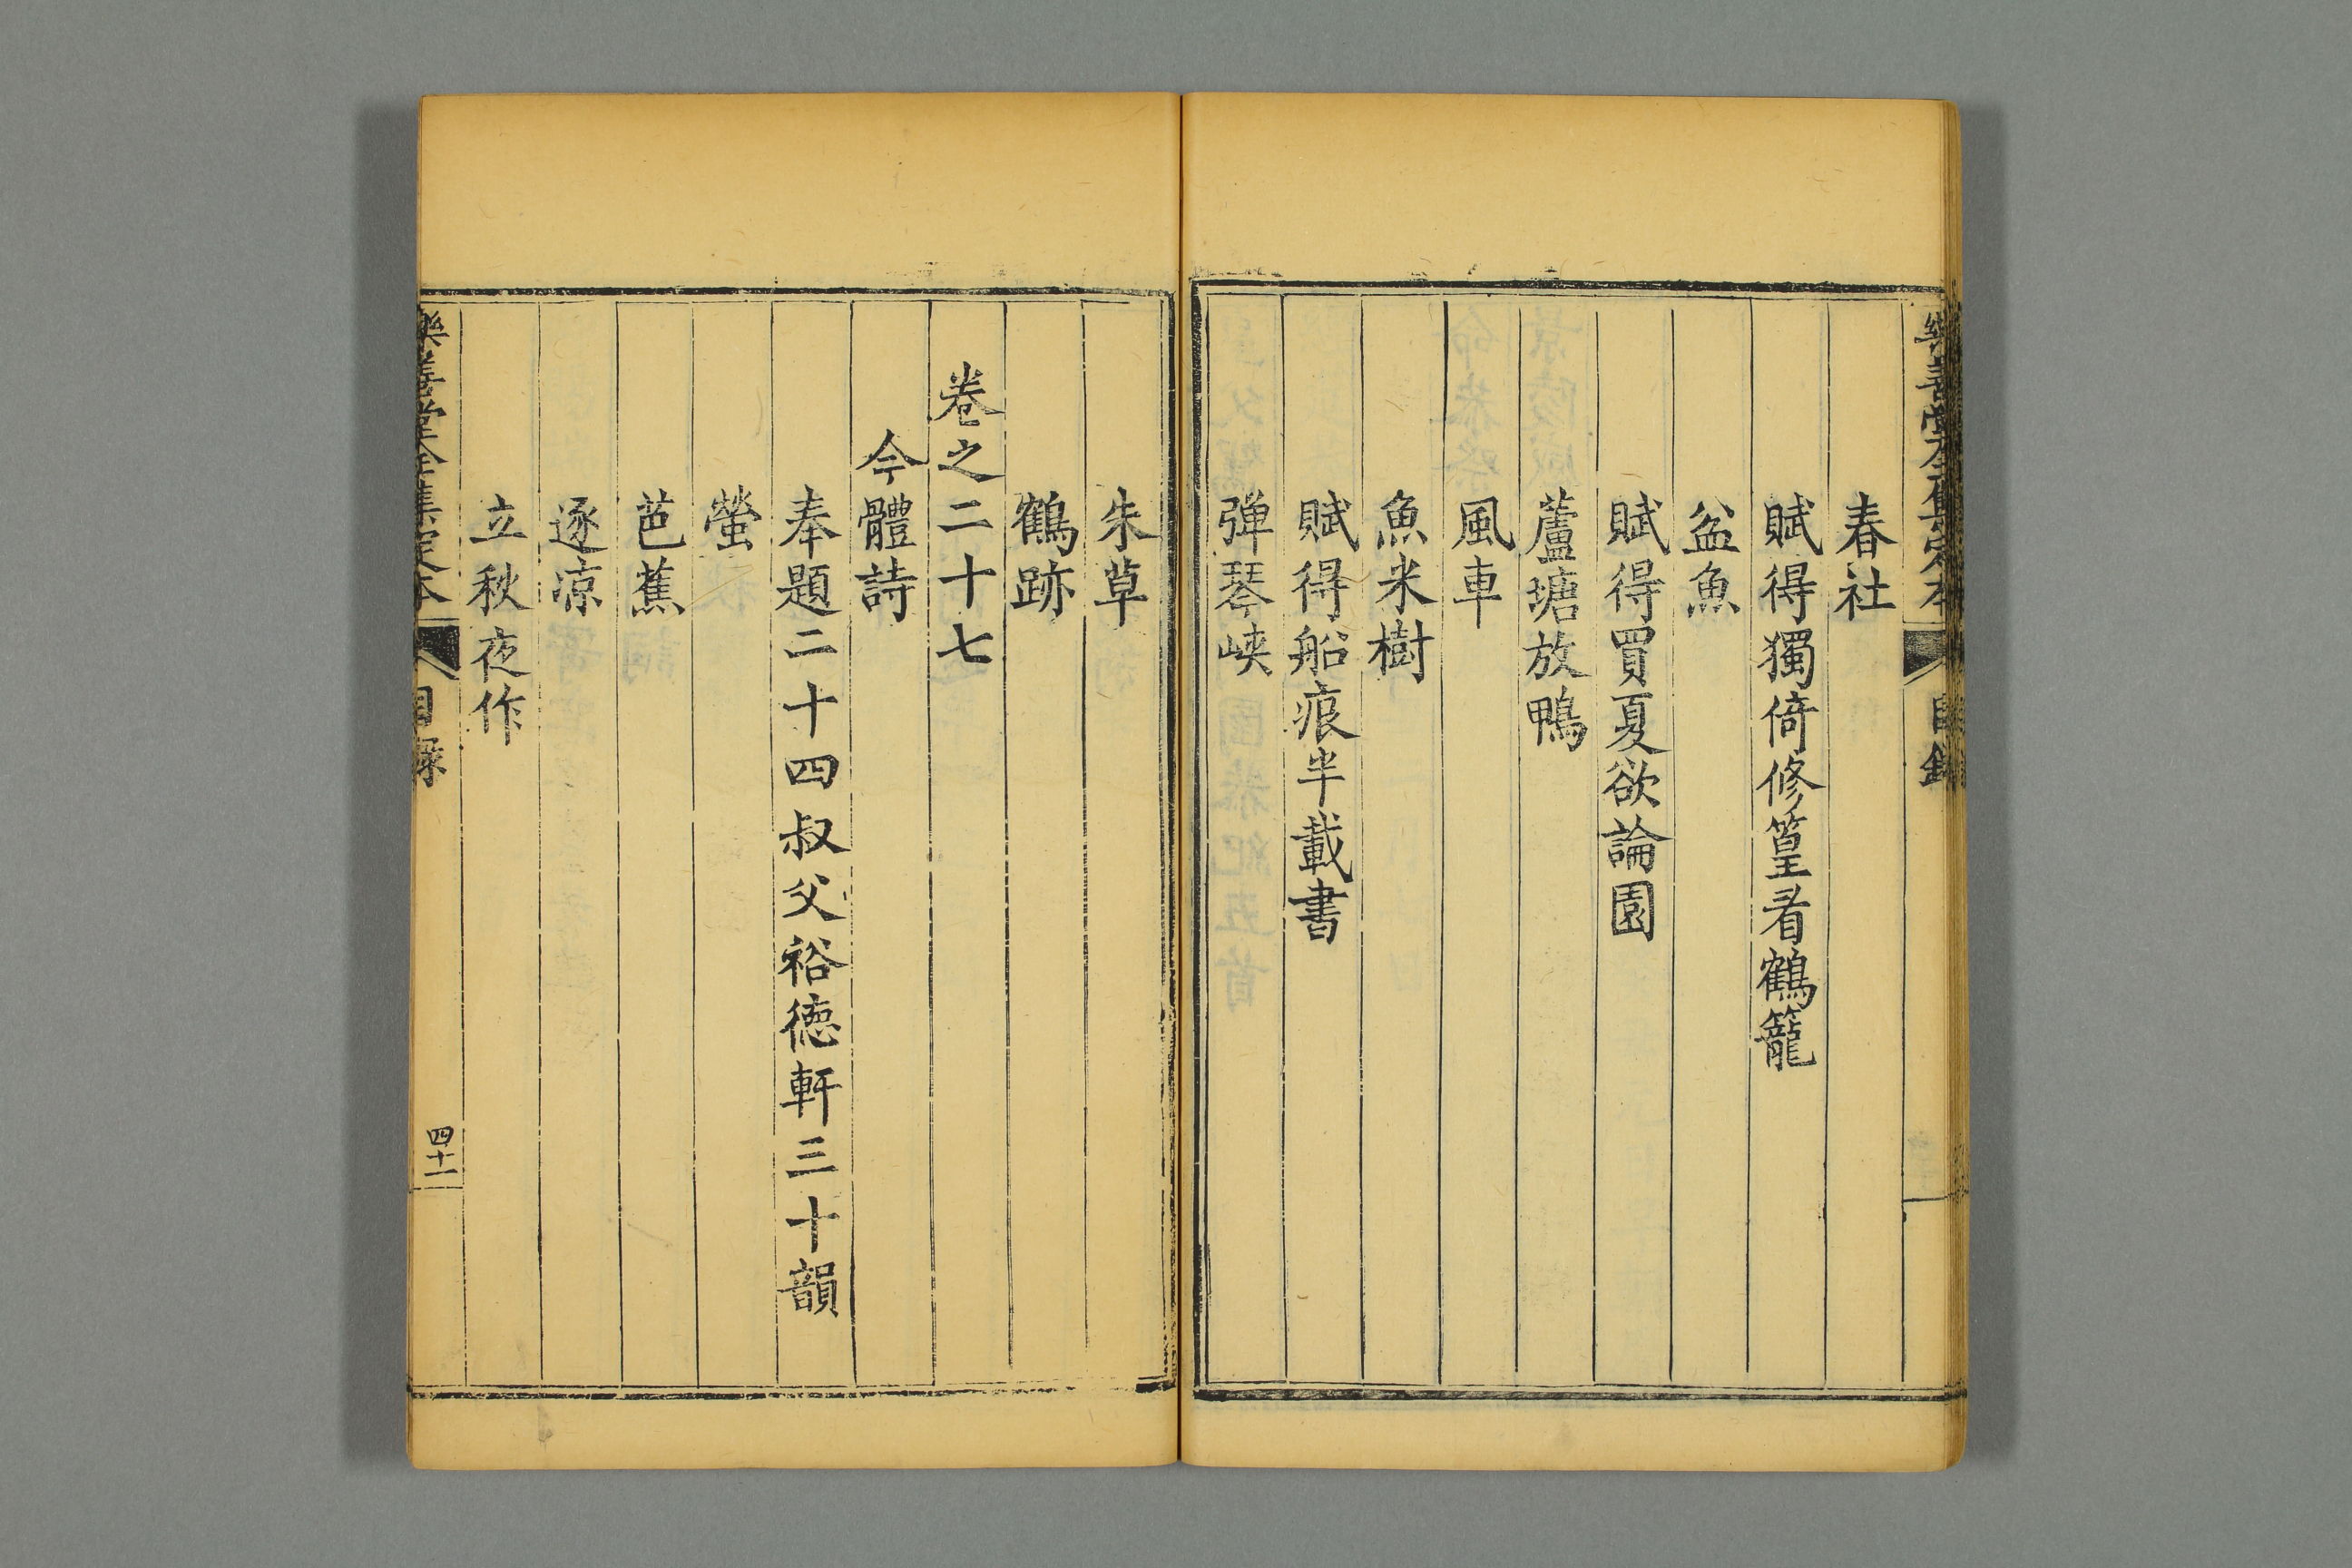 樂善堂全集定本 目錄
春社
賦得獨倚修篁看鶴籠
盆魚
賦得買夏欲論園
蘆塘放鴨
風車
魚米樹
賦得船痕半載書
弹琴峡
朱草
鶴跡
卷之二十七
今體詩
奉題二十四叔父裕德軒三十韻
螢
芭蕉
逐凉
立秋夜作
樂善堂全集定本 目錄 四十一